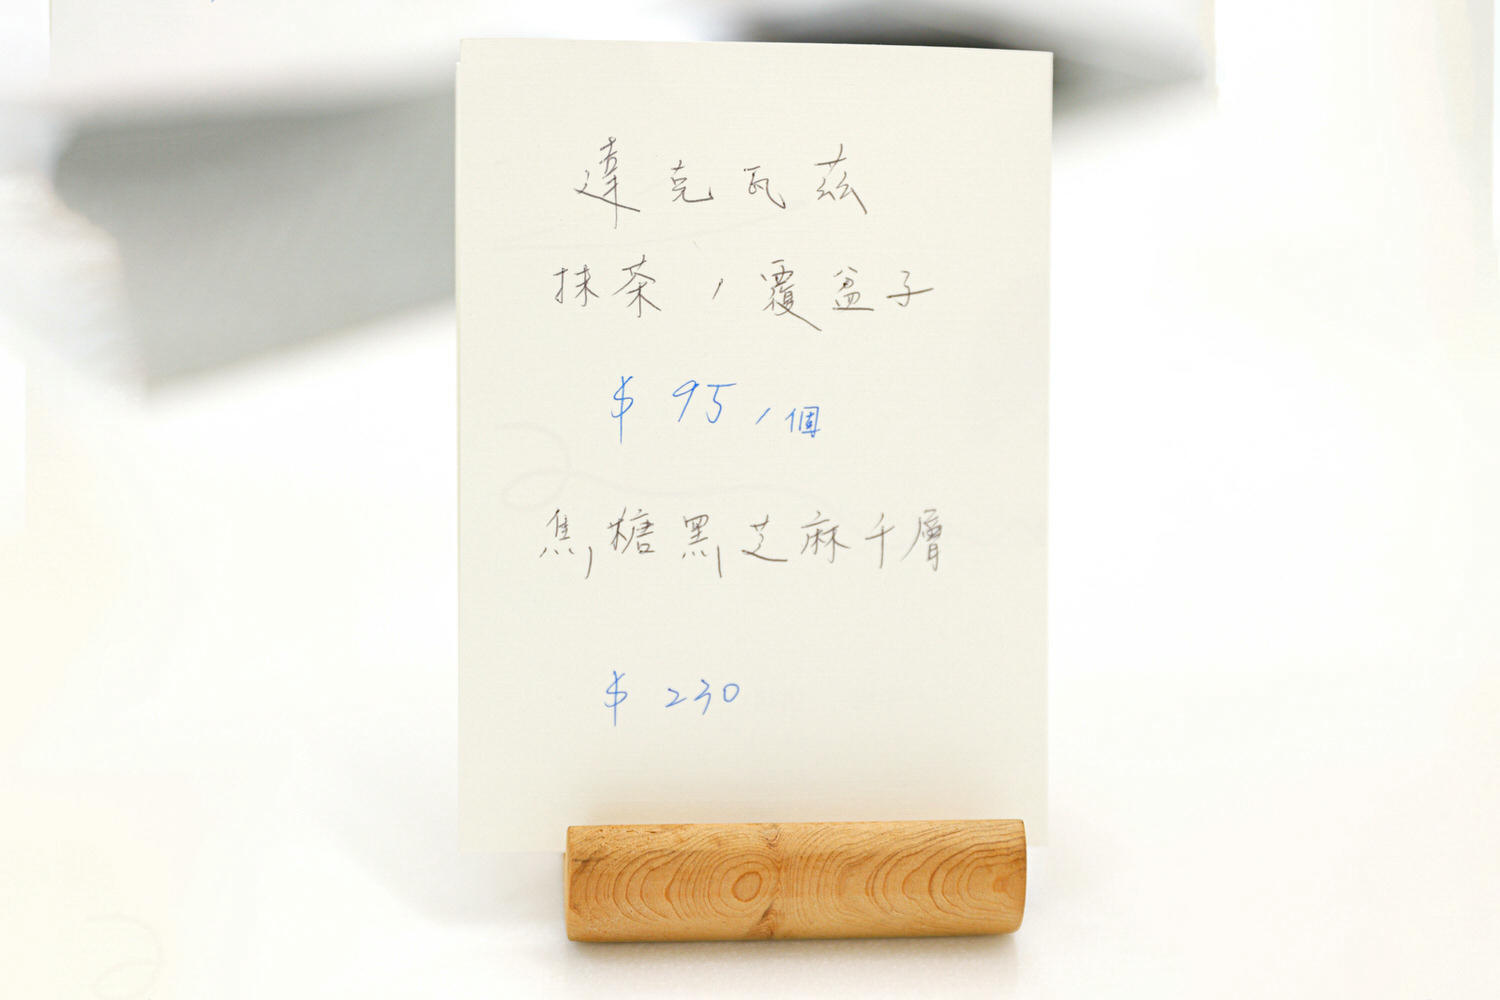 達克瓦茲
抹茶/覆盆子
$ 95/個
焦糖黑芝麻千層
$ 230